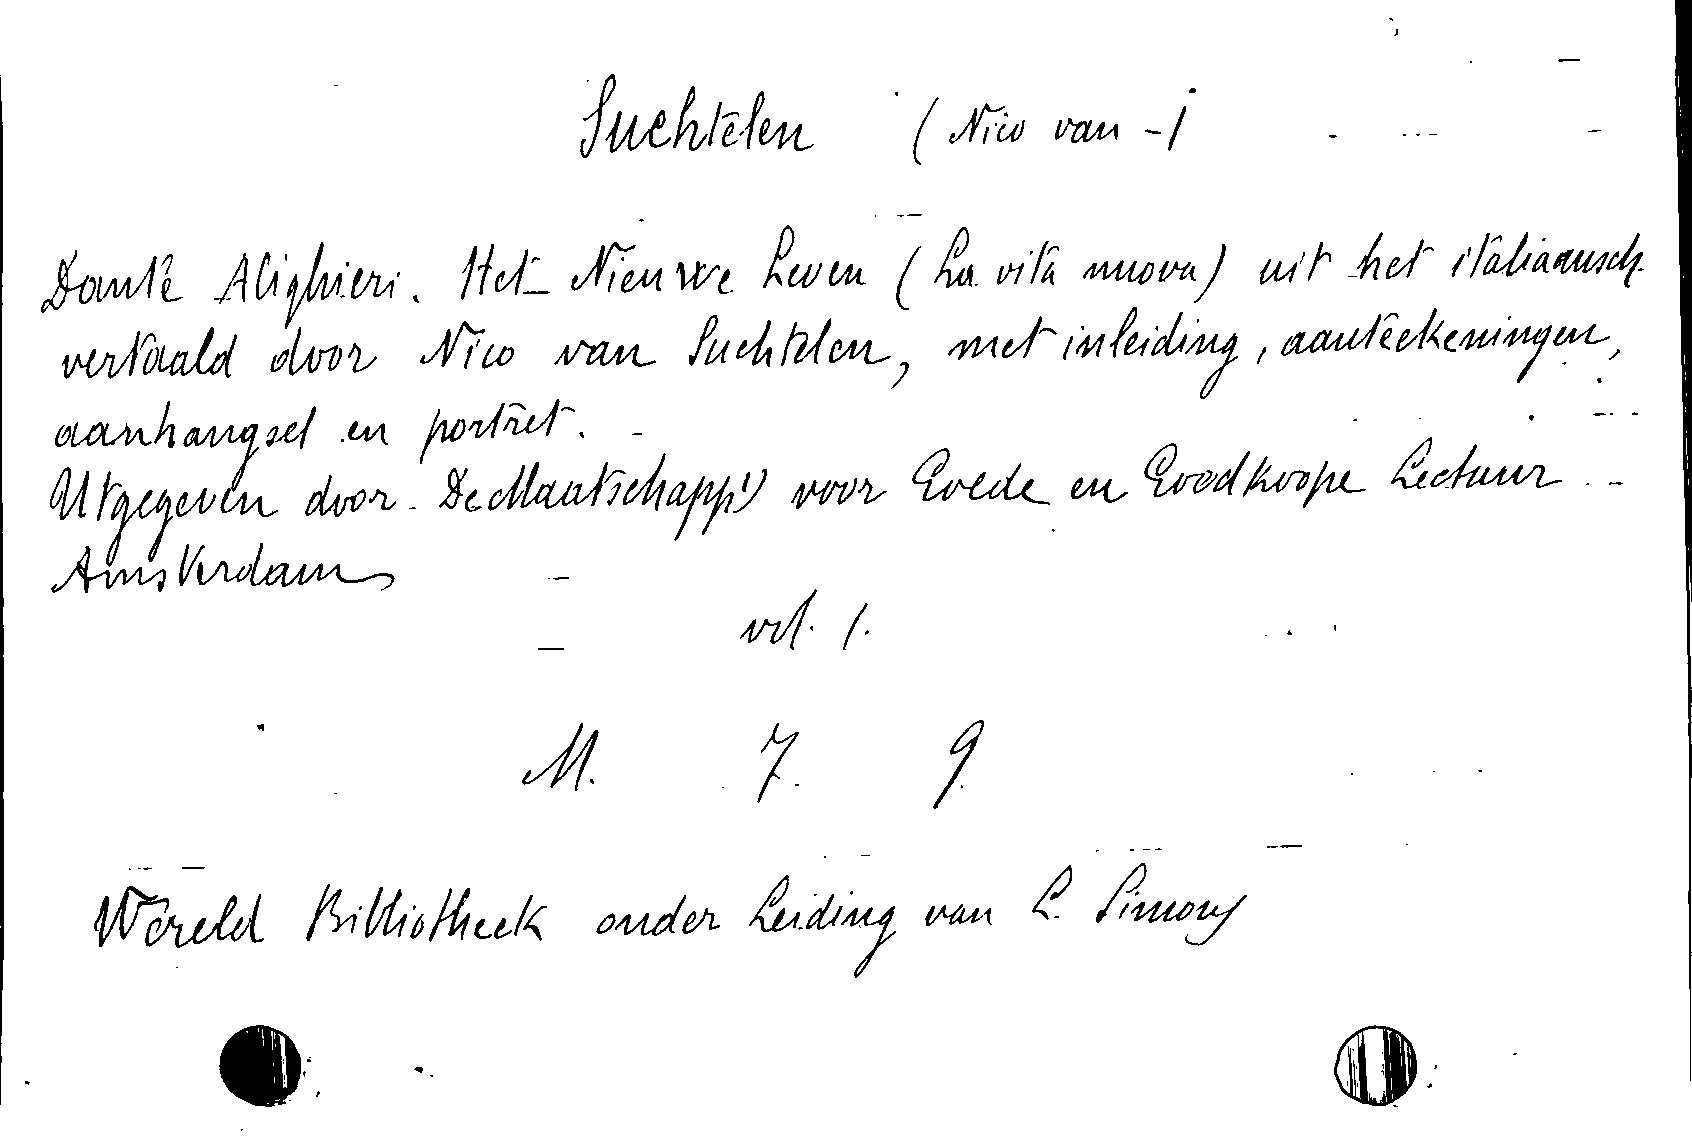 Suchtelen (Nico van -)
Dante Alighieri. Het Nieuwe Leven (La vita nuova) uit het italiaansch
vertaald door Nico van Suchtelen, met inleiding, aanteekeningen,
aanhangsel en portret.
Uitgegeven door De Maatschappij voor Goede en Goedkoope Lectuur
Amsterdam
vol. 1.
M. 7. 9.
Wereld Bibliotheek onder Leiding van L. Simons